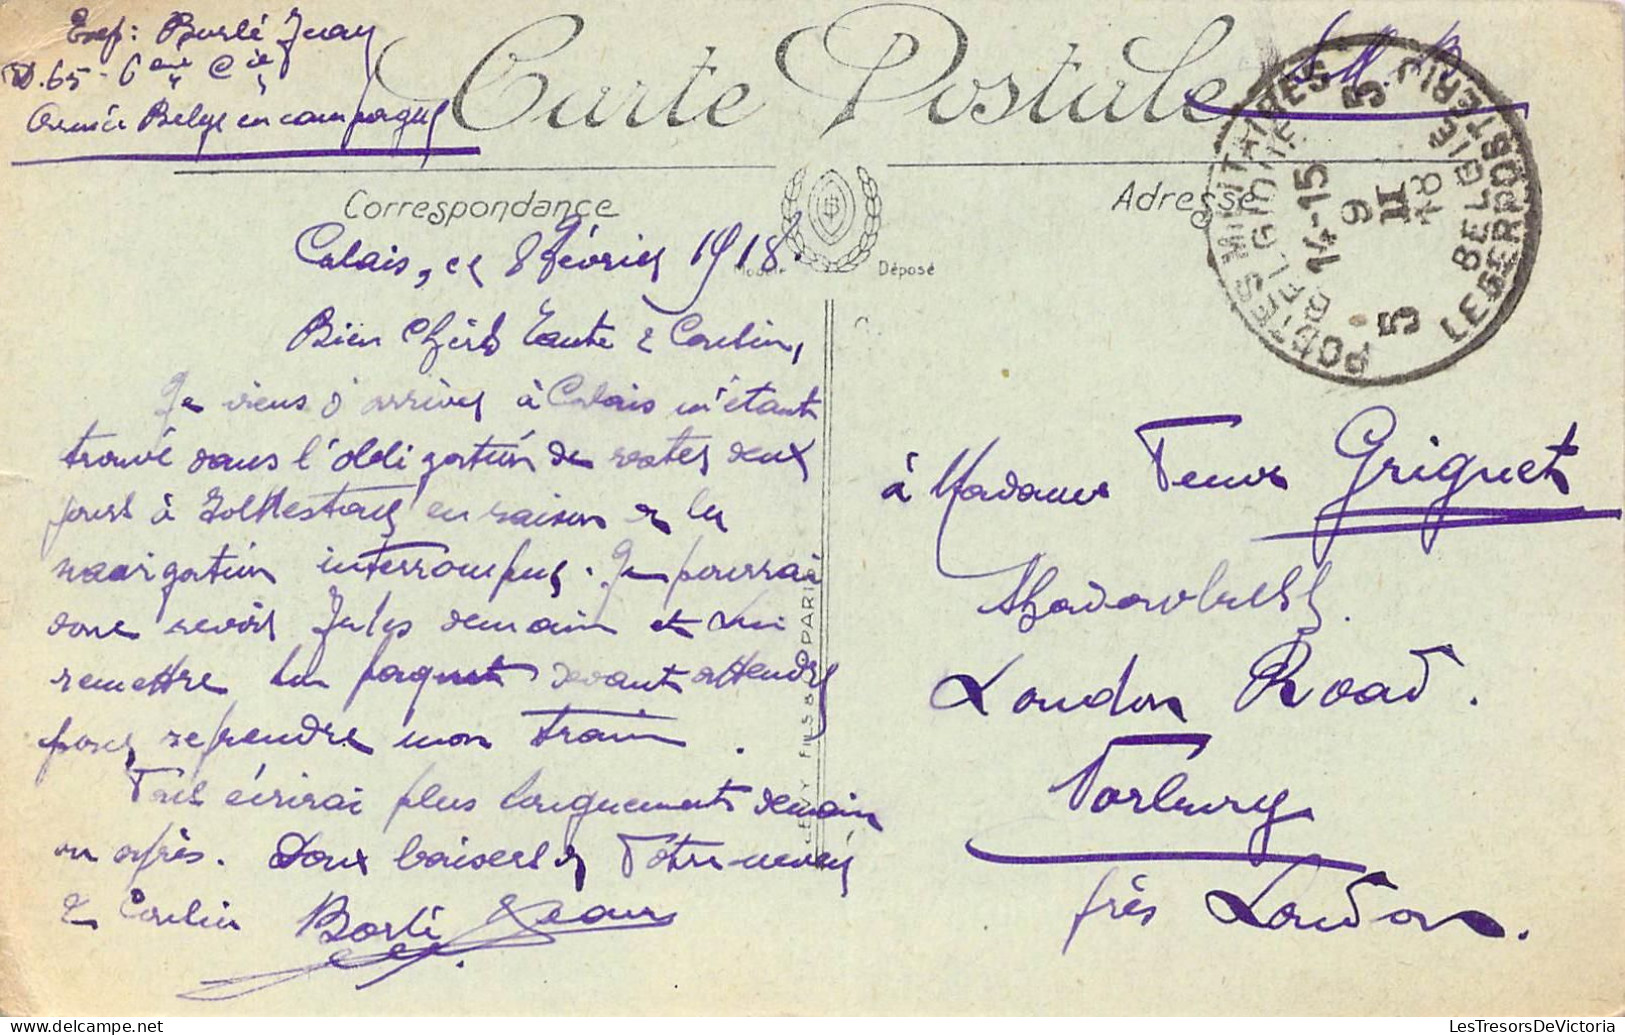 Exp: Borlé Jean
D.65 - 6eme Cie
Armée Belge en campagne
Carte Postale
S.M.
Correspondance
Adresse
Modèle Déposé
POSTES MILITAIRES BELGIQUE 5
14-15
9
II
18
5
LEGERPOSTERIJ BELGIE
Calais, ce 8 février 1918.
Bien Chers Tante & Cousin,
Je viens d'arriver à Calais m'étant
trouvé dans l'obligation de rester deux
jours à Folkestone en raison de la
navigation interrompue. Je pourrai
donc revoir Jules demain et lui
remettre le paquet devant attendre
pour reprendre mon train.
Vous écrirai plus longuement demain
ou après. Doux baisers de Votre neveu
& Cousin Borlé Jean
LEVY FILS & Co PARIS
à Madame Veuve Griguet
London Road.
Norbury
près London.